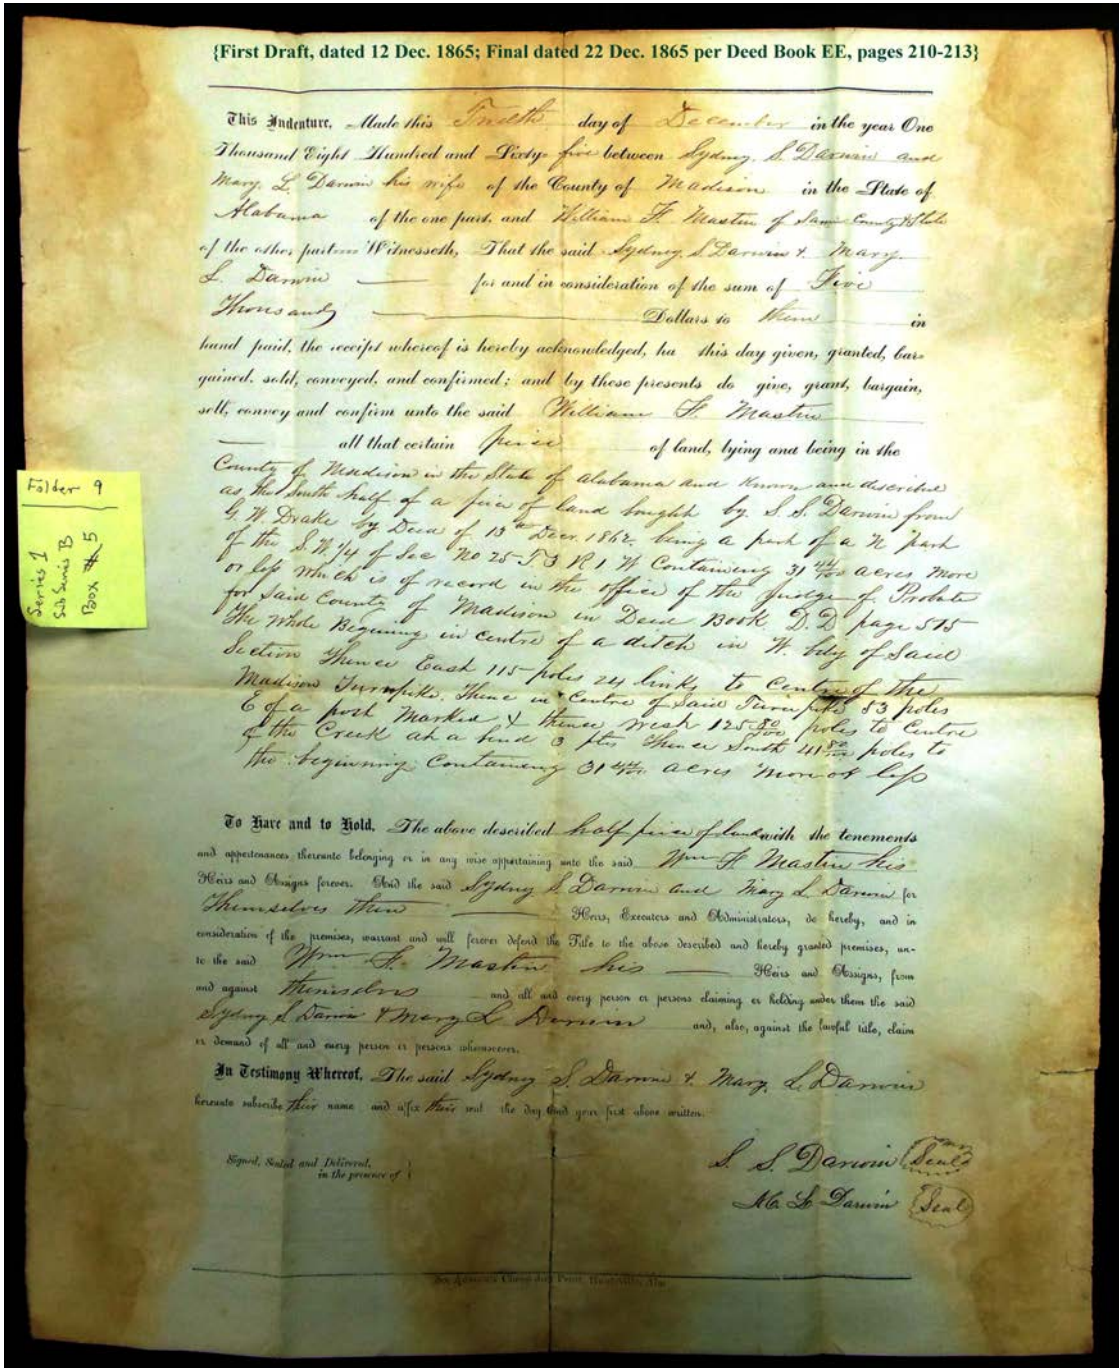 {First Draft, dated 12 Dec. 1865; Final dated 22 Dec. 1865 per Deed Book EE, pages 210-213}
This Indenture, Made this Twelth day of December in the year One
Thousand Eight Hundred and Sixty five between Sydney S. Darwin and
Mary L. Darwin his wife of the County of Madison in the State of
Alabama of the one part, and William F. Mastin of Same County & State
of the other part Witnesseth, That the said Sydney S. Darwin & Mary
L. Darwin for and in consideration of the sum of Five
Thousand Dollars to them in
hand paid, the receipt whereof is hereby acknowledged, ha this day given, granted, bar-
gained, sold, conveyed, and confirmed; and by these presents do give, grant, bargain,
sell, convey and confirm unto the said William F. Mastin
all that certain piece of land, lying and being in the
County of Madison in the State of Alabama and known and described
as the South half of a piece of land bought by S. S. Darwin from
G. W. Drake by Deed of 13th Decr. 1862, being a part of a N part
of the S. W. 1/4 of Sec No 25 T 3 R 1 W Containing 31 44/100 acres more
or less which is of record in the office of the Judge of Probate
for Said County of Madison in Deed Book D.D page 515
The whole Begining in centre of a ditch in W. bdy of Said
Section Thence East 115 poles 24 links to Centre of the
Madison Turnpike. Thence in Centre of Said Turnpike 53 poles
E of a post Marked X thence west 125 80/100 poles to Centre
of the Creek at a bend 3 pts Thence South 41 80/100 poles to
the beginning Containing 31 44/100 acres more or less
To Have and to Hold, The above described half piece of land with the tenements
and appertenances thereunto belonging or in any wise appertaining unto the said Wm F Mastin his
Heirs and Assigns forever. And the said Sydney S Darwin and Mary L Darwin for
Themselves their Heirs, Executors and Administrators, do hereby, and in
consideration of the premises, warrant and will forever defend the Title to the above described and hereby granted premises, un-
to the said Wm F. Mastin his Heirs and Assigns, from
and against themselves and all and every person or persons claiming or holding under them the said
Sydney S Darwin & Mary L Darwin and, also, against the lawful title, claim
or demand of all and every person or persons whomsoever.
In Testimony Whereof, The said Sydney S. Darwin & Mary L Darwin
hereunto subscribe their name and affix their seal the day and year first above written.
Signed, Sealed and Delivered,
in the presence of
S. S. Darwin Seal
M. L. Darwin Seal
Folder 9
Series 1
Sub Series B
Box # 5